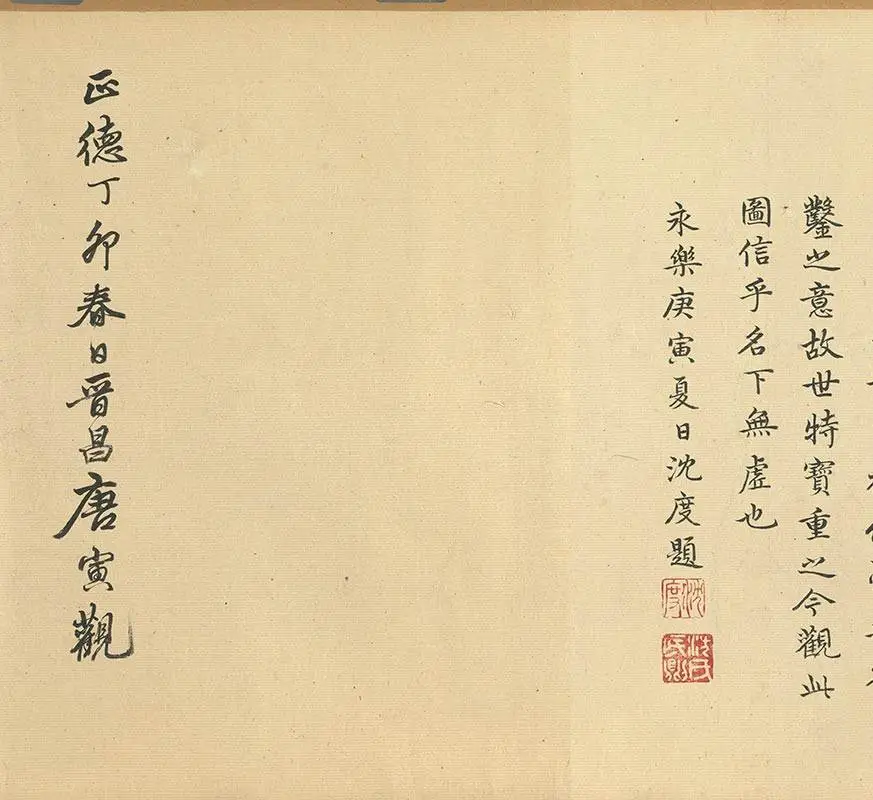 鑿之意故世特寶重之今觀此
圖信乎名下無虛也
永樂庚寅夏日沈度題
沈度
沈氏民則
正德丁卯春日晉昌唐寅觀